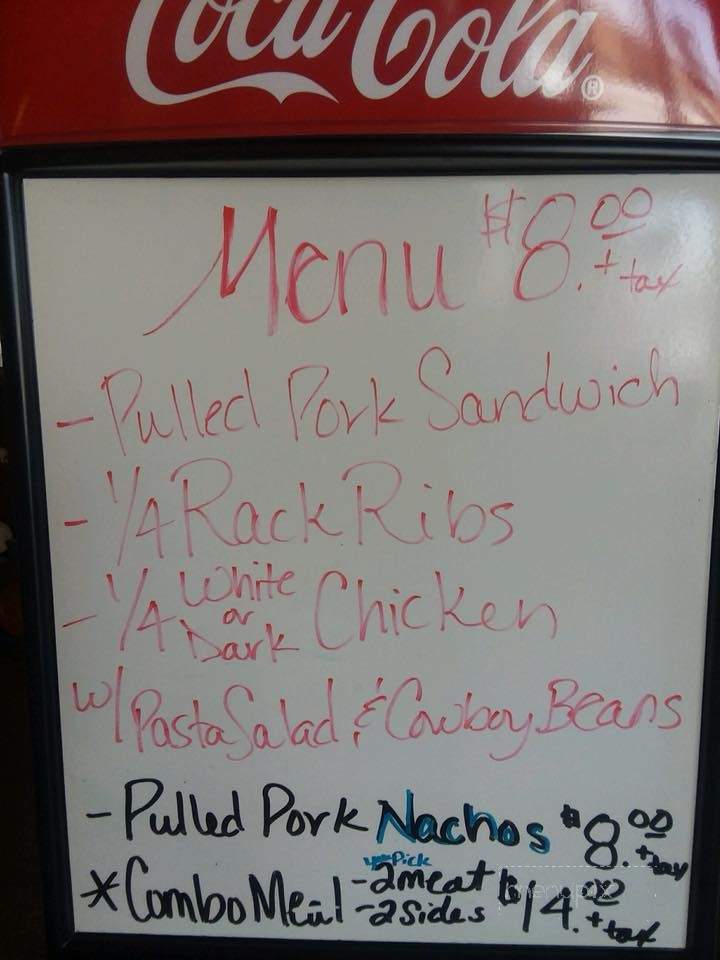 Coca-Cola®
Menu $8.00 + tax
- Pulled Pork Sandwich
- 1/4 Rack Ribs
- 1/4 White or Dark Chicken
w/ Pasta Salad & Cowboy Beans
- Pulled Pork Nachos $8.00 + tax
you Pick
* Combo Meal - 2 meat $14.00 + tax
- 2 sides
menupix